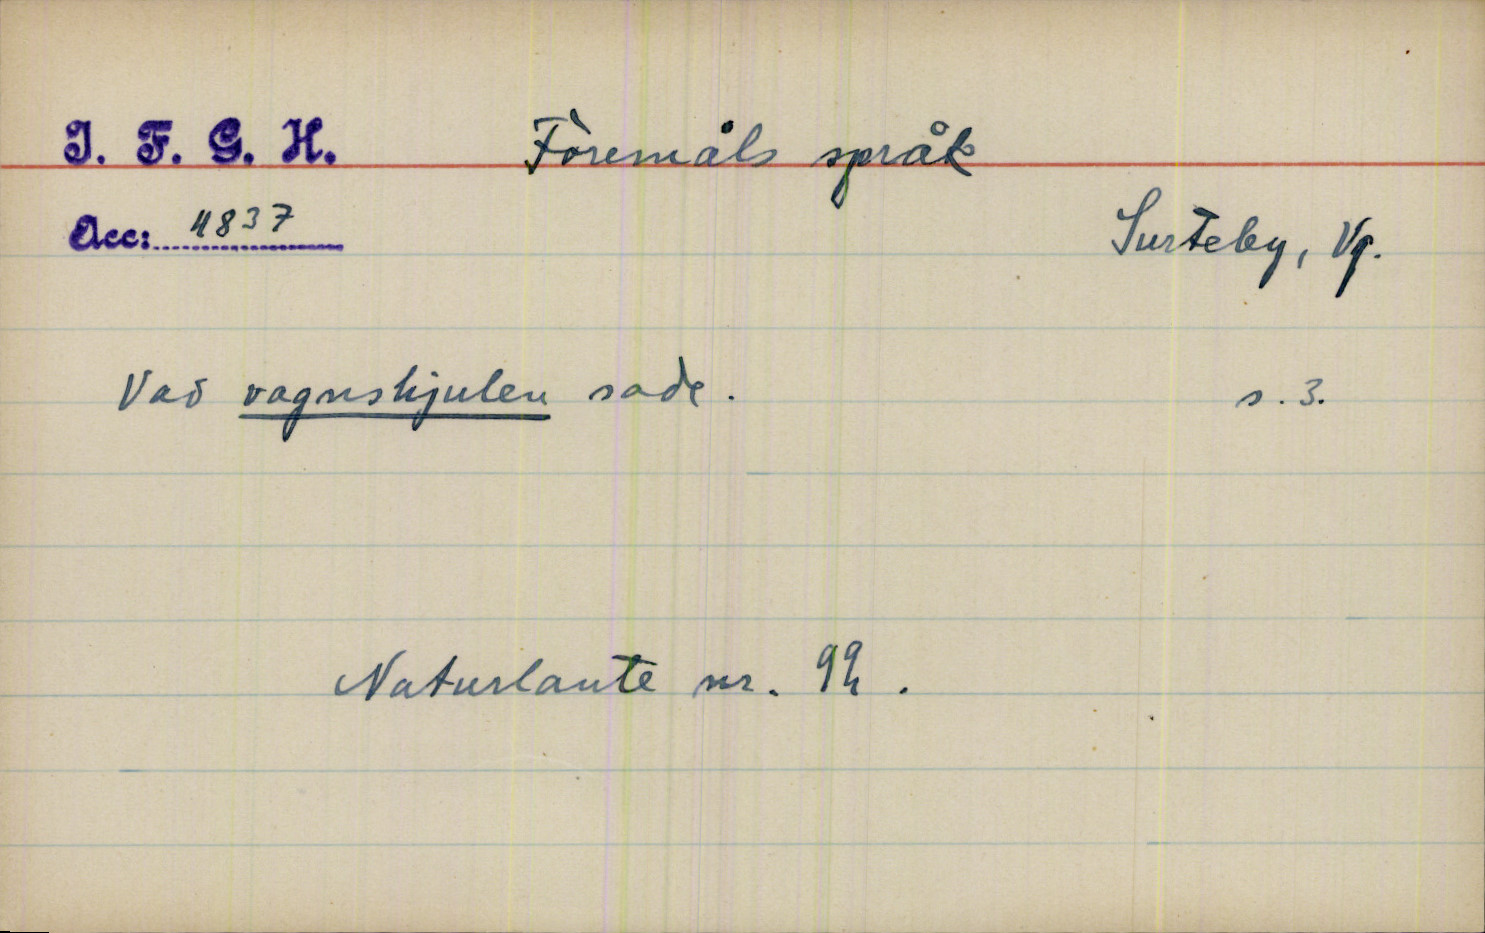 I. F. G. H.
Föremåls språk
Acc: 4837
Surteby, Vg.
Vad vagnshjulen sade.
s. 3.
Naturlaute nr. 94.